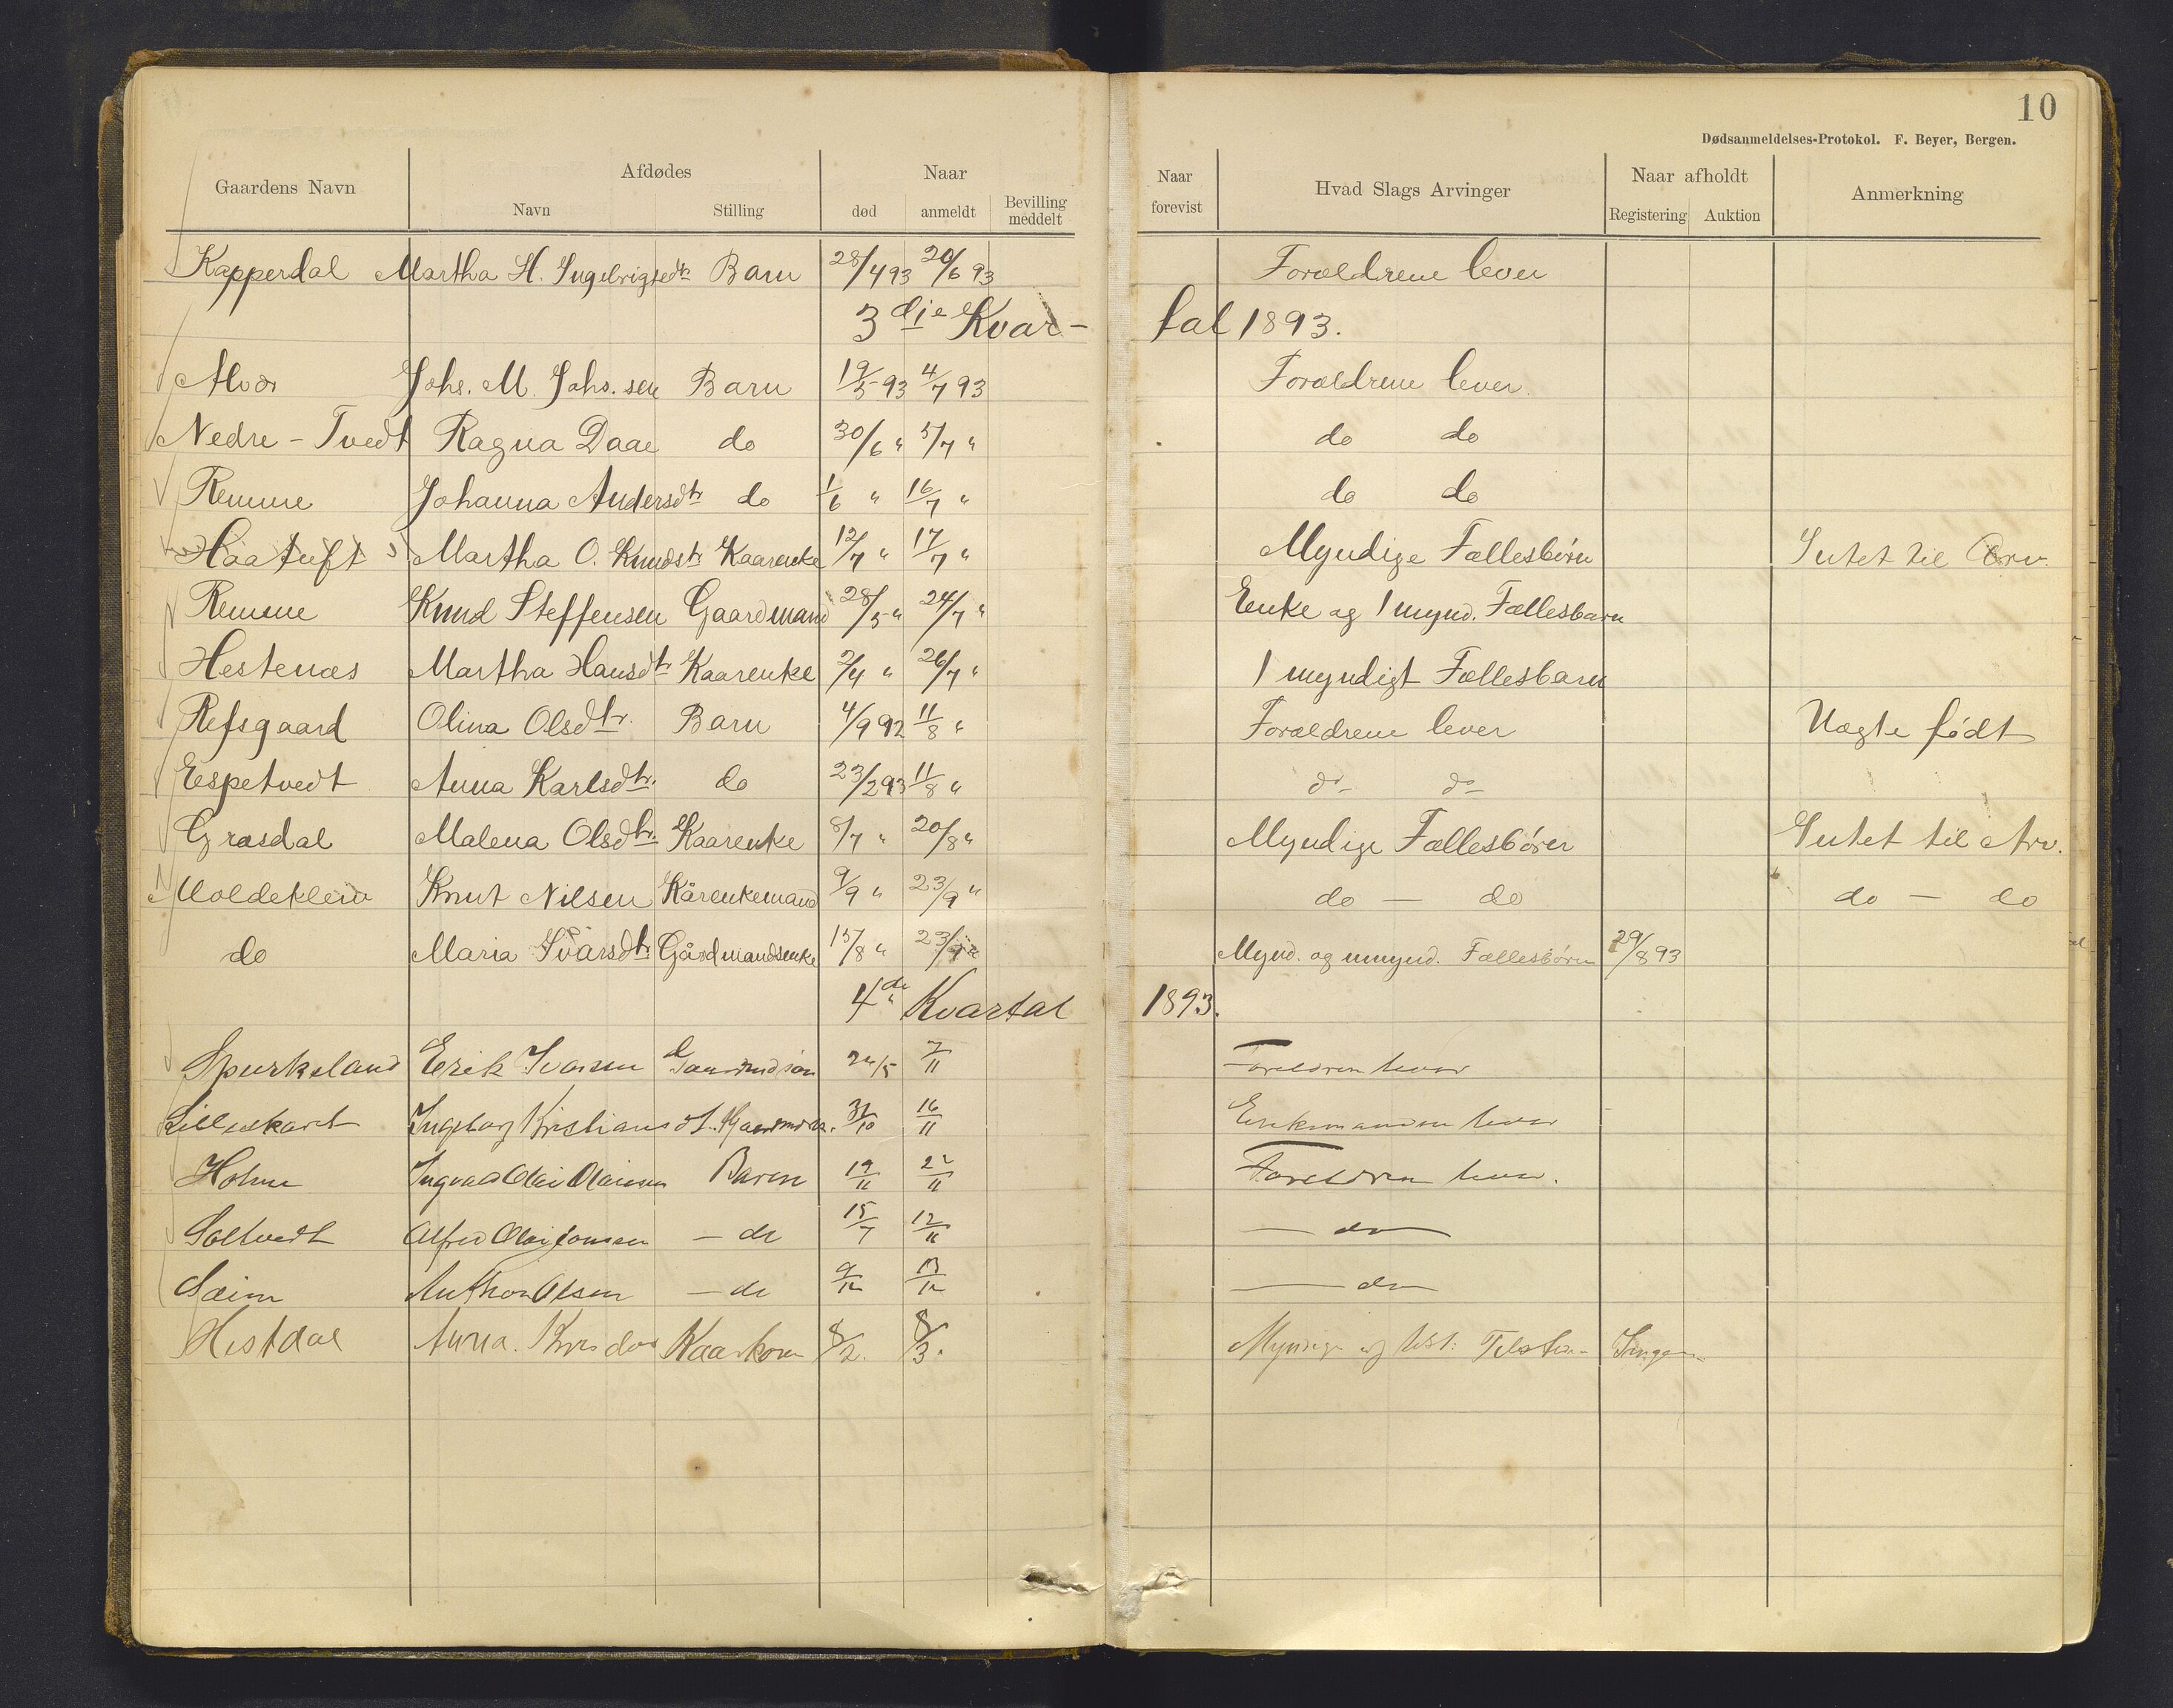 10
Dødsanmeldelses-Protokol. F. Beyer, Bergen.
Gaardens Navn Afdødes Naar Naar forevist Hvad Slags Arvinger Naar afholdt Anmerkning
Navn Stilling død anmeldt Bevilling meddelt Registering Auktion
Kapperdal Martha H. Ingebrigtsdtr Barn 28/4 93 20/6 93 Forældrene lever
3die Kvar- tal 1893.
Alvær Johs. M. Johs.sen Barn 19/5 93 4/7 93 Forældrene lever.
Nedre-Tvedt Ragna Daae do 30/6 " 5/7 " do do
Remme Johanna Andersdtr do 1/6 " 16/7 " do do
Haatuft Martha O. Knudsdtr Kaarenke 12/7 " 17/7 " Myndige Fællesbørn Intet til Arv.
Remme Knud Steffensen Gaardmand 28/5 " 24/7 " Enke og 1 mynd. Fællesbarn
Hestenæs Martha Hansdtr Kaarenke 2/4 " 26/7 " 1 myndigt Fællesbarn
Refsgaard Olina Olsdtr. Barn 4/9 92 11/8 " Forældrene lever Uægte født
Espetvedt Anna Karlsdtr. do 23/2 93 11/8 " do do
Græsdal Malena Olsdtr. Kaarenke 8/7 " 20/8 " Myndige Fællesbörn Intet til Arv.
Moldekleiv Knut Nilsen Kårenkemand 9/9 " 23/9 " do — do do — do
do Maria Ivarsdtr Gårdmandsenke 15/8 " 23/9 " Mynd. og umynd. Fællesbörn 29/8 93
4de Kvartal 1893.
Spurkeland Erik Ivarsen 24/5 7/11 Foreldren lever
Lilleskaret Ingeborg Kristians dt. 31/10 16/11 Enkemanden lever
Holme Ingvald Olai Olaisen Barn 19/11 22/11 Foreldren lever.
Soltvedt Alfred Olai Jonsen — do 15/7 12/11 — do
Sæim Anthon Olsen — do 9/12 13/12 — do
Hestdal Anna 8/2. 8/3. Myndige og Ingen